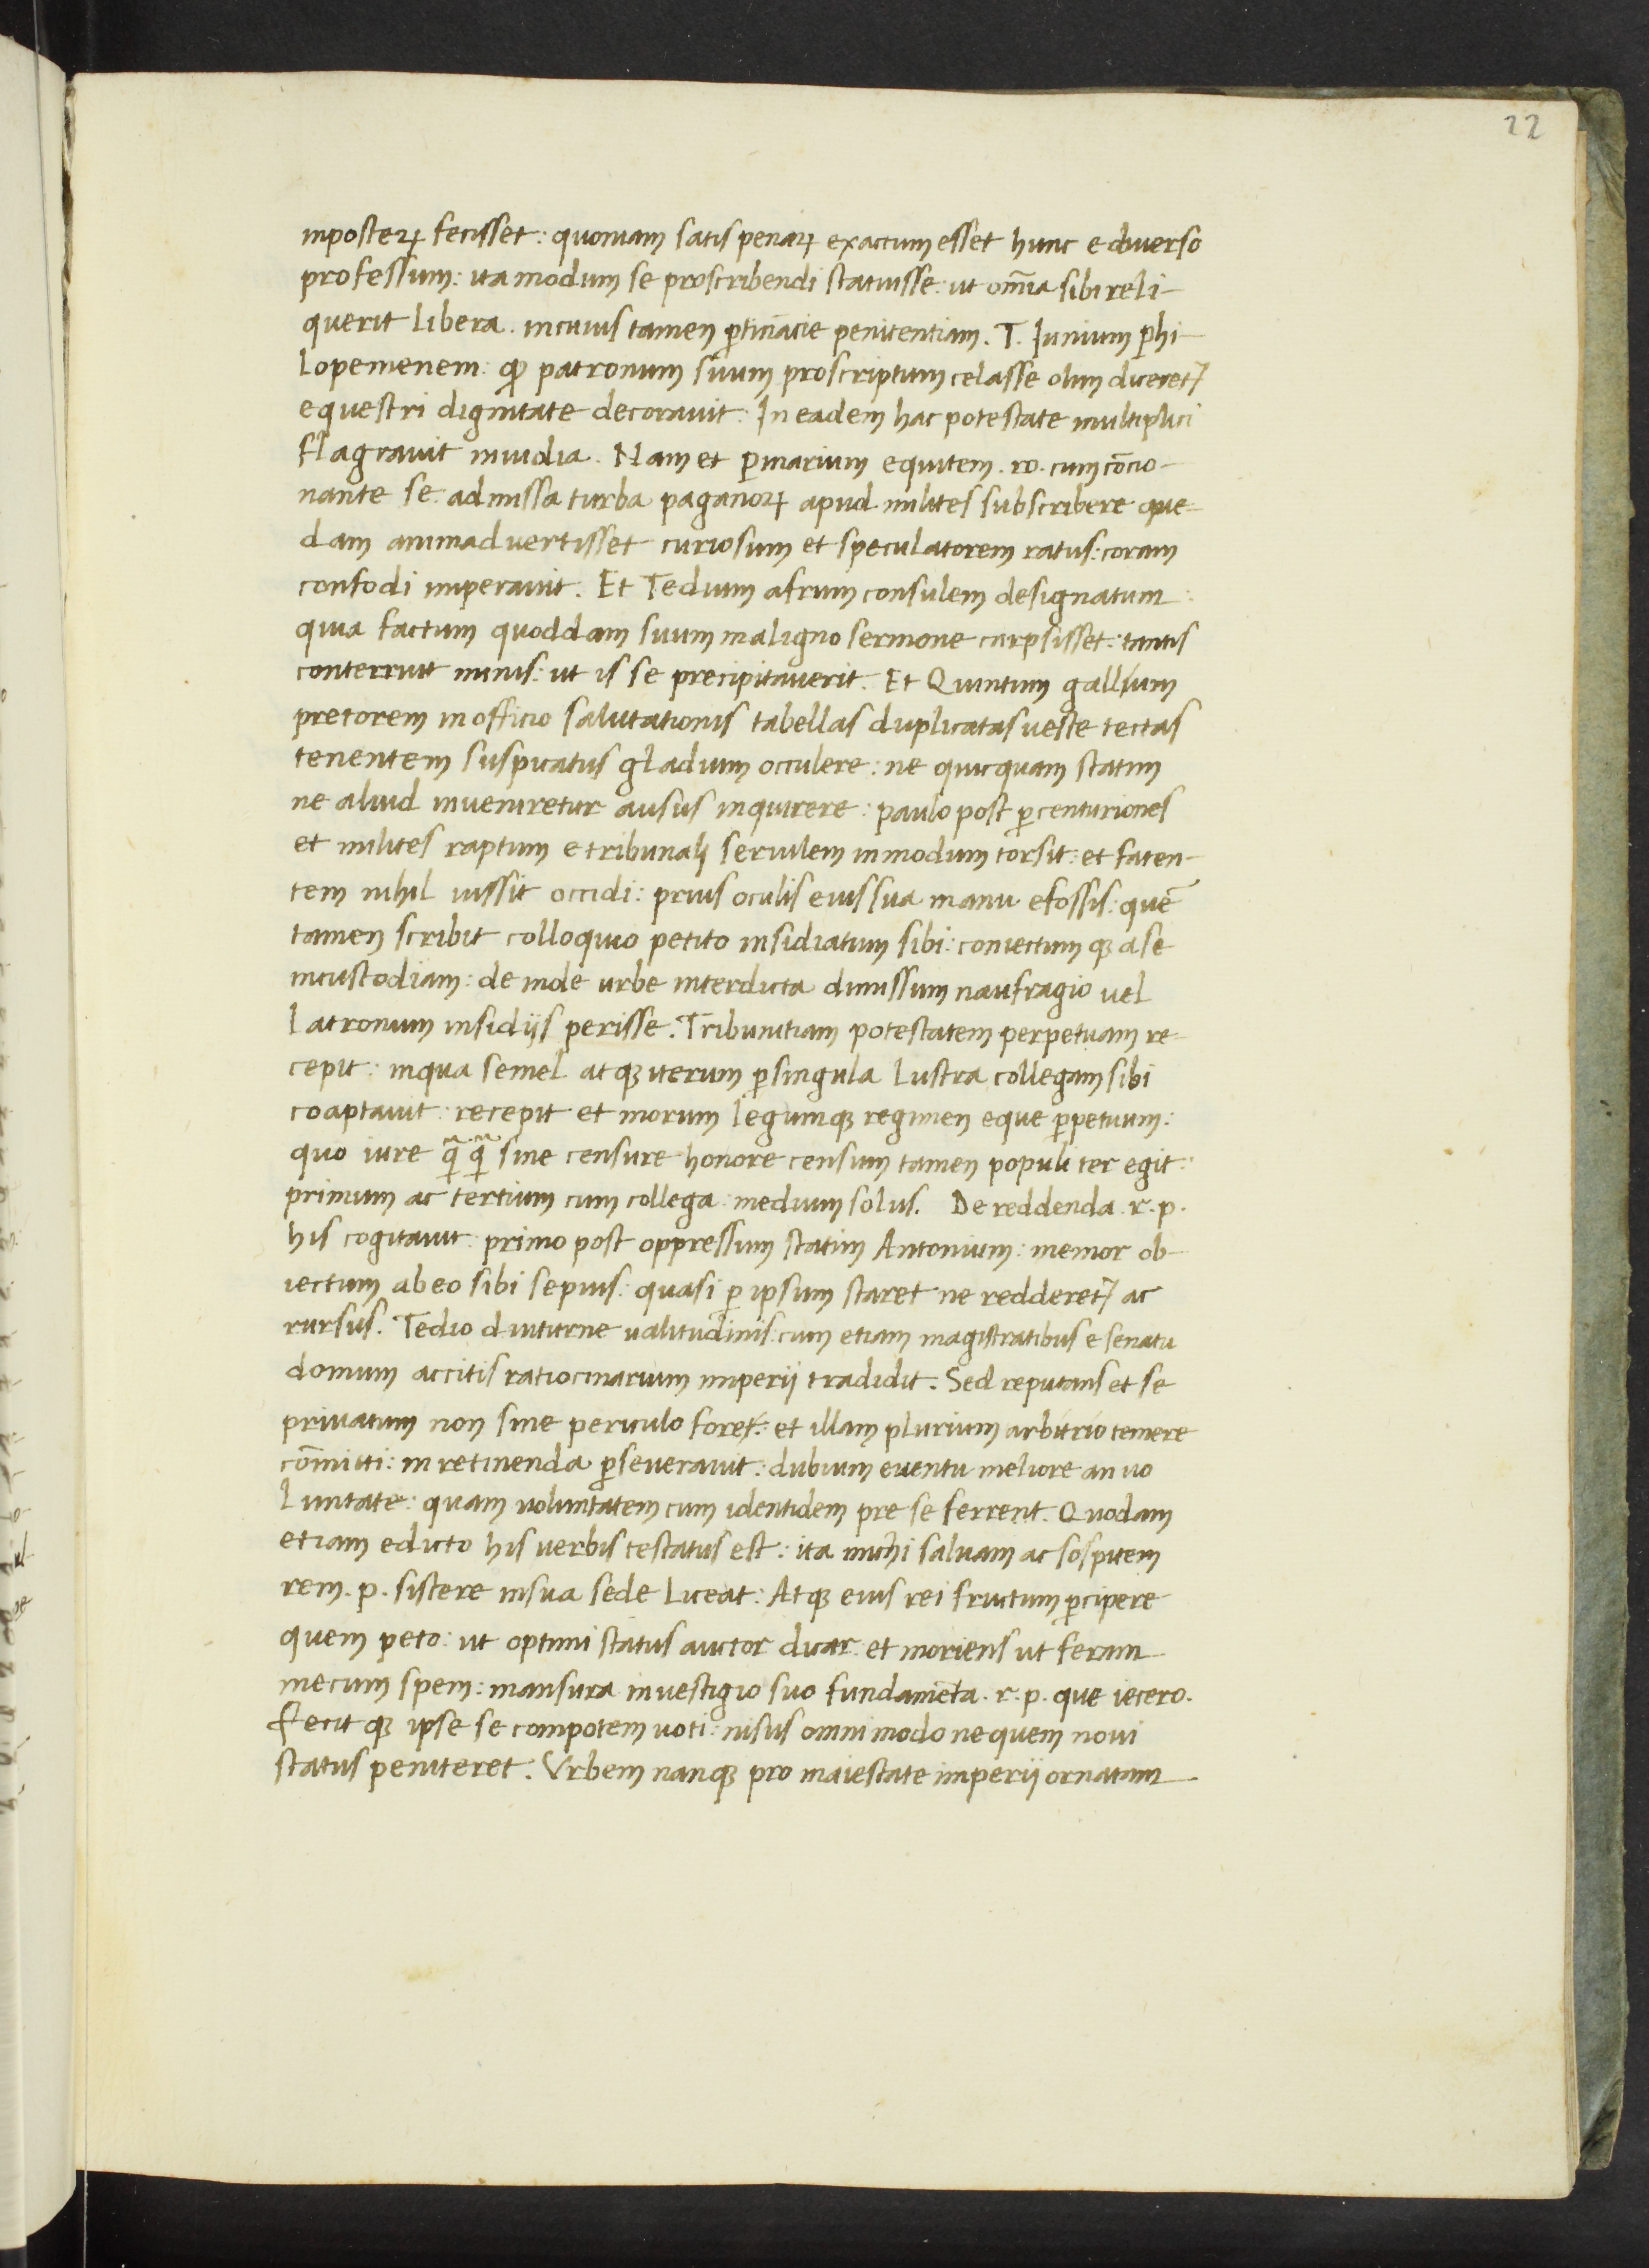 22
inposteꝝ fecisset: quoniam satis penaꝝ exactum esset hunc e diverso
professum: ita modum se proscribendi statuisse: ut om̄ia sibi reli-
querit libera. in cuius tamen ꝑtinacie penitentiam. T. Junium phi-
lopemenem: ꝙ patronum suum proscriptum celasse olim diceret᷑
equestri dignitate decoravit: In eadem hac potestate multiplici
flagravit invidia. Nam et ꝑinarium equitem. ro. cum cōcio-
nante se. admissa turba paganoꝝ apud milites subscribere que-
dam animadvertisset curiosum et speculatorem ratus: coram
confodi imperavit. Et Tedium afrum consulem designatum:
quia factum quoddam suum maligno sermone carpsisset: tantis
conterruit minis: ut is se precipitaverit. Et Quintum gallium
pretorem in officio salutationis tabellas duplicatas veste tectas
tenentem suspicatus gladium occulere: ne quicquam statim
ne aliud inveniretur ausus inquirere: paulo post ꝑ centuriones
et milites raptum e tribunali servilem in modum torsit: et faten-
tem nihil iussit occidi: prius oculis eius sua manu efossis: quē
tamen scribit colloquio petito insidiatum sibi: coniectumqꝫ a se
in custodiam: de inde urbe interdicta dimissum naufragio vel
latronum insidijs perisse. Tribunitiam potestatem perpetuam re-
cepit: in qua semel atqꝫ iterum ꝑ singula lustra collegam sibi
coaptavit: recepit et morum legumqꝫ regimen eque ꝑpetuum:
quo iure q̄ꝫ q̄ꝫ sine censure honore censum tamen populi ter egit:
primum ac tertium cum collega: medium solus. De reddenda. r. p.
his cogitavit: primo post oppressum statim Antonium: memor ob-
iectum ab eo sibi sepius: quasi ꝑ ipsum staret ne redderet᷑ ac
rursus. Tedio diuturne valitudinis: cum etiam magistratibus e senatu
domum accitis ratiocinarium imperij tradidit. Sed reputans et se
privatum non sine periculo foret: et illam plurium arbitrio temere
cōmitti: in retinenda ꝑseveravit: dubium eventu meliore an vo
luntate: quam voluntatem cum identidem pre se ferrent. Quodam
etiam edicto his verbis testatus est: ita michi salvam ac sospitem
rem. p. sistere in sua sede liceat: Atqꝫ eius rei fructum ꝑcipere
quem peto: ut optimi status auctor dicar: et moriens ut feram
mecum spem: mansura in vestigio suo fundamēta. r. p. que iecero.
fecitqꝫ ipse se compotem voti: nisus omni modo ne quem novi
status peniteret. Urbem nanqꝫ pro maiestate imperij ornatam